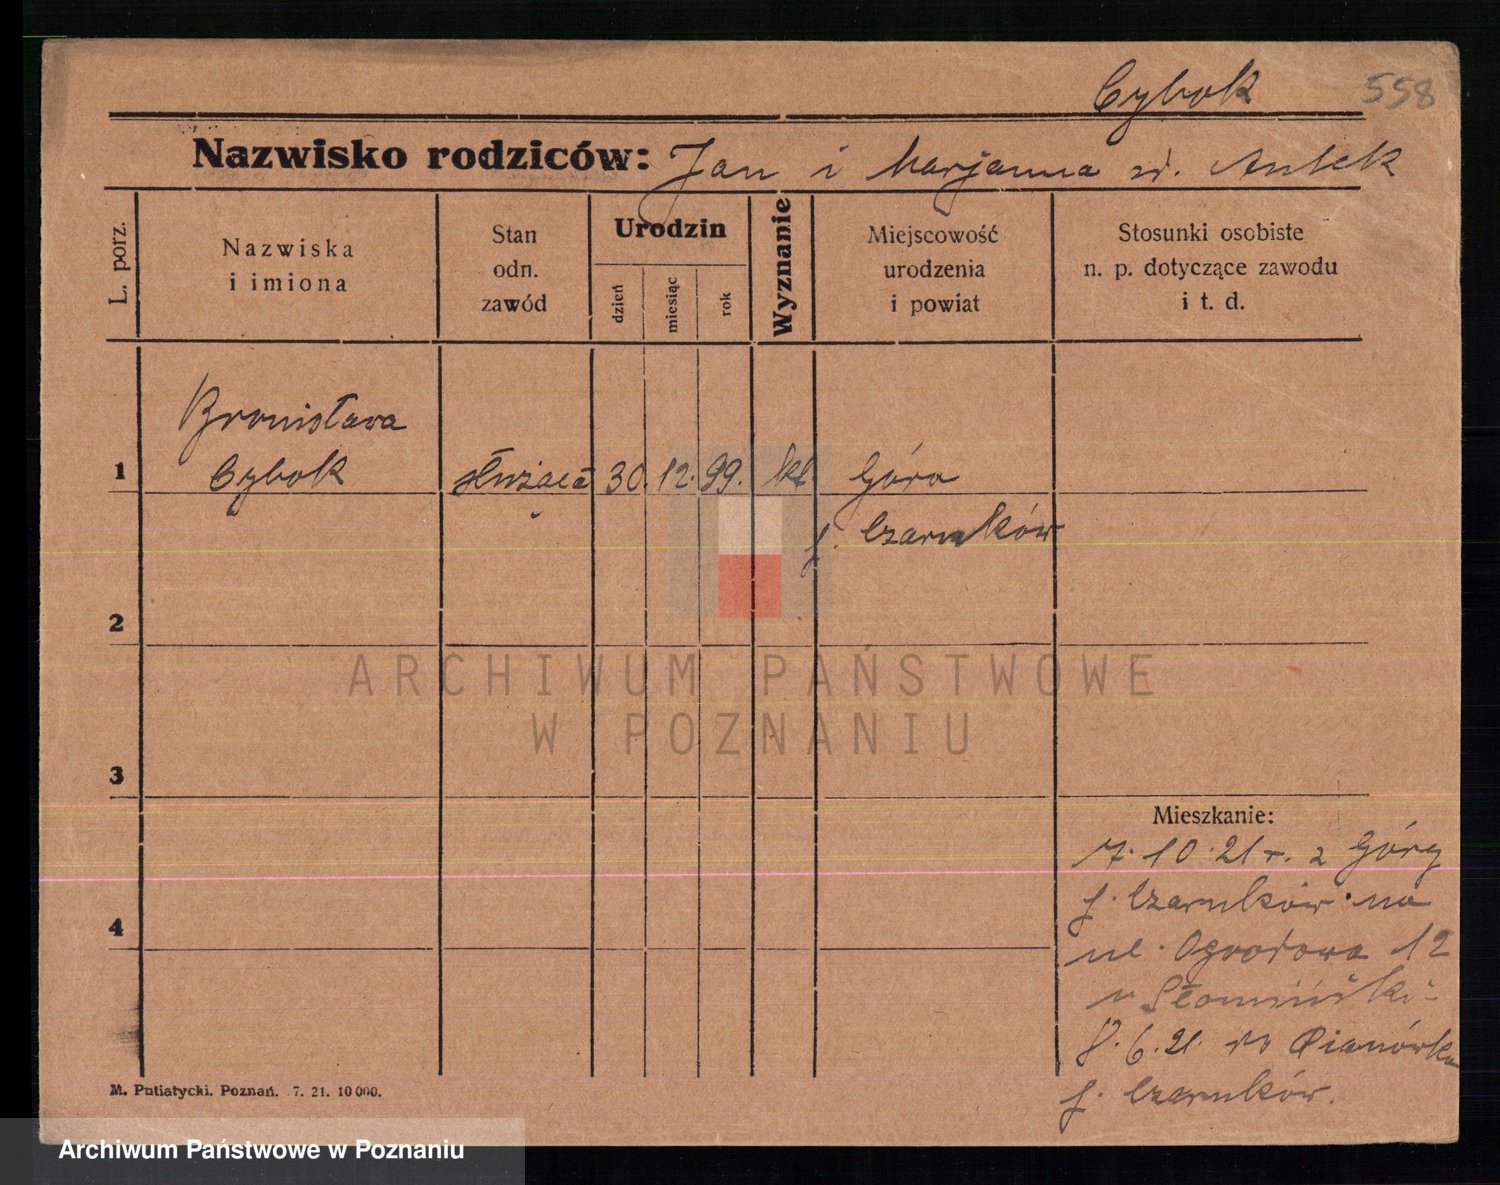 Cybok 558
Nazwisko rodziców: Jan i Marjanna zd. Antek
L. porz.
Nazwiska
i imiona
Stan
odn.
zawód
Urodzin
dzień
miesiąc
rok
Wyznanie
Miejscowość
urodzenia
i powiat
Stosunki osobiste
n. p. dotyczące zawodu
i t. d.
Bronisława
1 Cybok służąca 30. 12. 99. kt. Góra
p. Czarnków
2
ARCHIWUM PAŃSTWOWE
W POZNANIU
3
Mieszkanie:
7. 10. 21 r. z Góry
p. Czarnków na
4
ul. Ogrodowa 12
u Słomiński
8. 6. 21. do Pianówka
p. Czarnków.
M. Putiatycki. Poznań. 7. 21. 10 000.
Archiwum Państwowe w Poznaniu